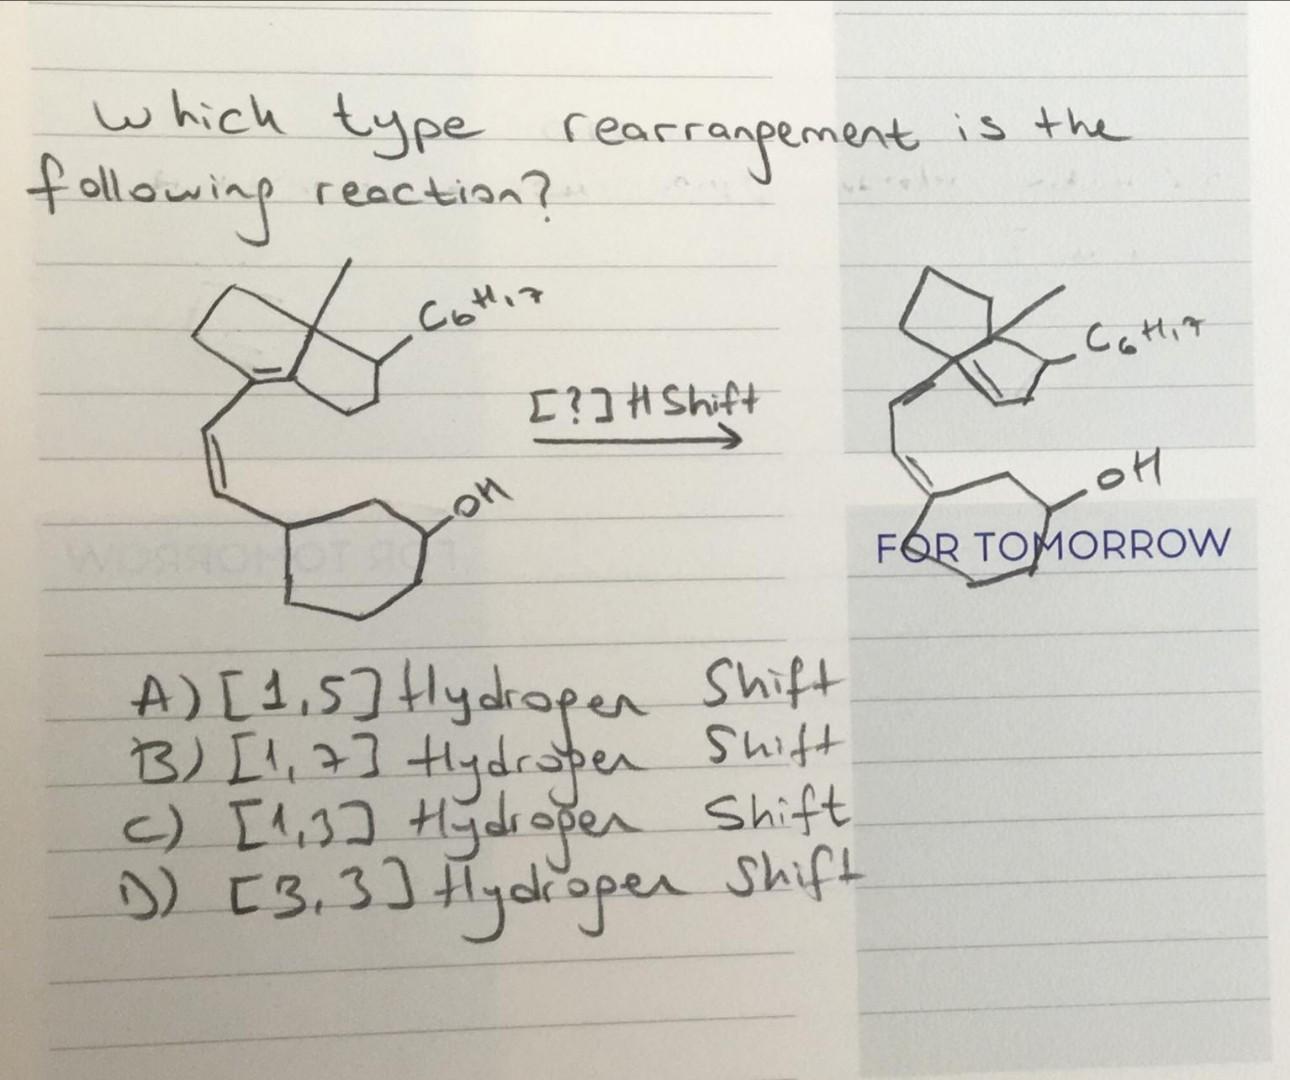 Which type rearrangement is the
following reaction?
C6H17
[?] H Shift
C6H17
OH
OH
FOR TOMORROW
A) [1,5] Hydrogen Shift
B) [1,7] Hydrogen Shift
C) [1,3] Hydrogen Shift
D) [3,3] Hydrogen Shift